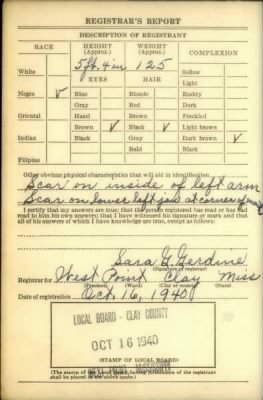 REGISTRAR'S REPORT
DESCRIPTION OF REGISTRANT
RACE HEIGHT (Approx.) WEIGHT (Approx.) COMPLEXION
5 ft. 4 in 125
White Sallow
EYES HAIR Light
Negro ✓ Blue Blonde Ruddy
Gray Red Dark
Oriental Hazel Brown Freckled
Brown ✓ Black ✓ Light brown
Indian Black Gray Dark brown ✓
Bald Black
Filipino
Other obvious physical characteristics that will aid in identification
Scar on inside of left arm
Scar on lower left jaw at corner of
I certify that my answers are true; that the person registered has read or has had
read to him his own answers; that I have witnessed his signature or mark and that
all of his answers of which I have knowledge are true, except as follows:
Sara G. Gerdine
(Signature of registrar)
Registrar for West Point Clay Miss
(Precinct) (Ward) (City or county) (State)
Date of registration Oct. 16, 1940
LOCAL BOARD - CLAY COUNTY
OCT 16 1940
(STAMP OF LOCAL BOARD)
(The stamp of the Local Board having jurisdiction of the registrant
shall be placed in the above space.)